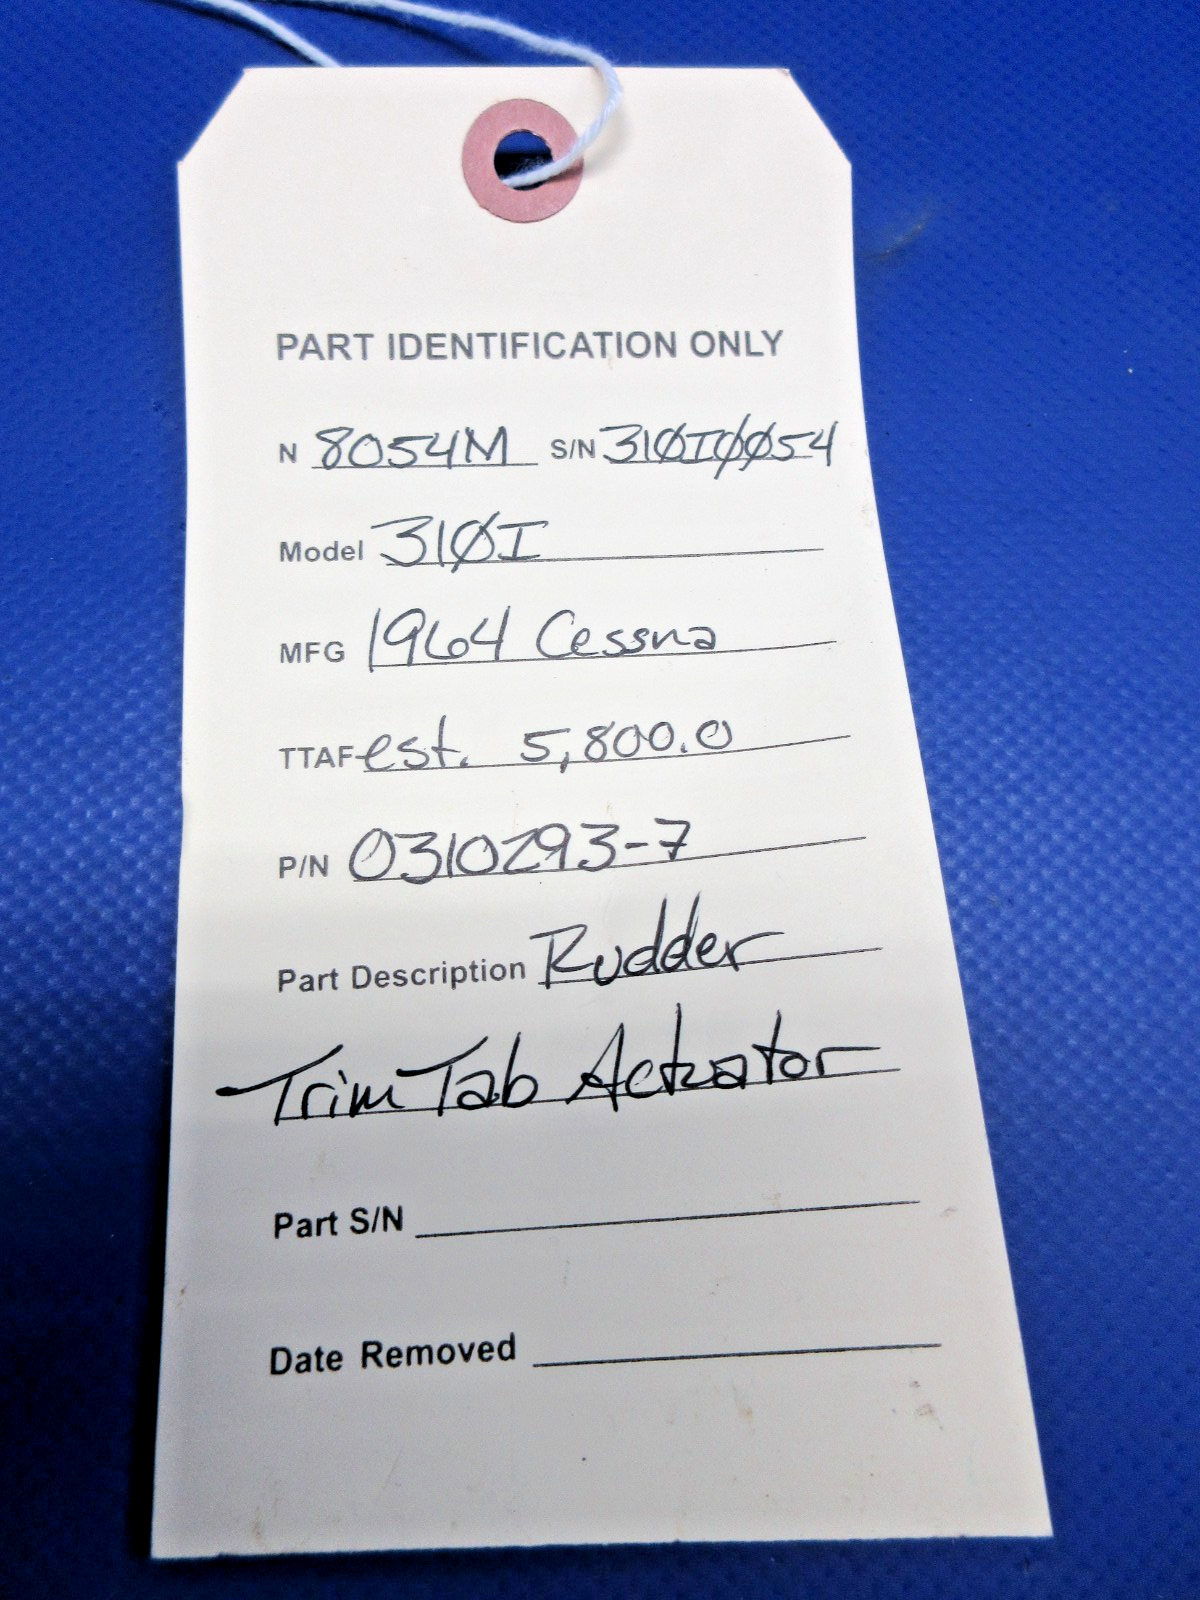 PART IDENTIFICATION ONLY
N 8054M S/N 310I0054
Model 310I
MFG 1964 Cessna
TTAF est. 5,800.0
P/N 0310293-7
Part Description Rudder
Trim Tab Actuator
Part S/N
Date Removed